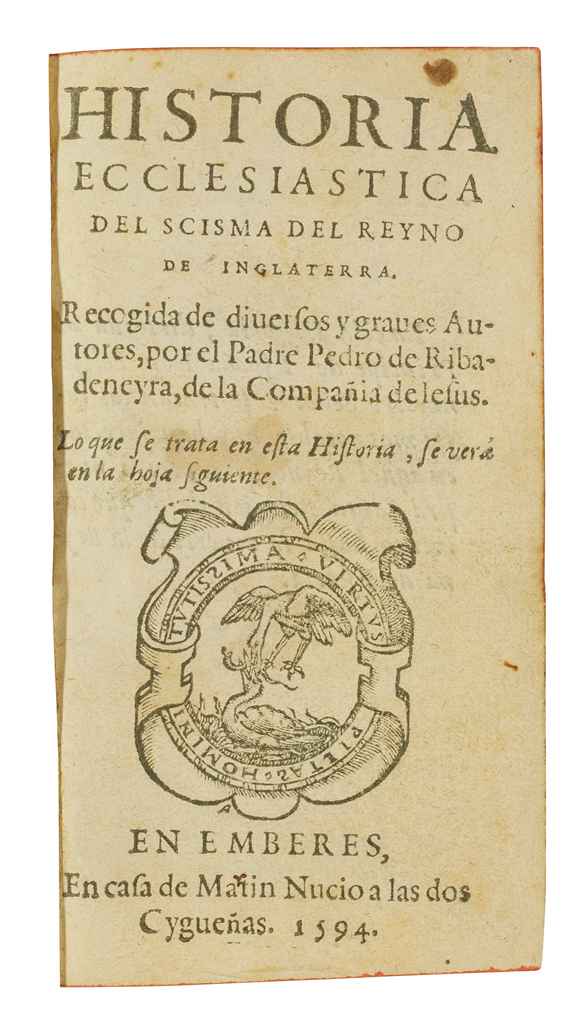 HISTORIA
ECCLESIASTICA
DEL SCISMA DEL REYNO
DE INGLATERRA.
Recogida de diuerſos y graues Au-
tores, por el Padre Pedro de Riba-
deneyra, de la Compañia de Ieſus.
Lo que ſe trata en eſta Hiſtoria, ſe verá
en la hoja ſiguiente.
TVTISSIMA VIRTVS
PIETAS HOMINI
A
EN EMBERES,
En caſa de Martin Nucio a las dos
Cygueñas. 1594.